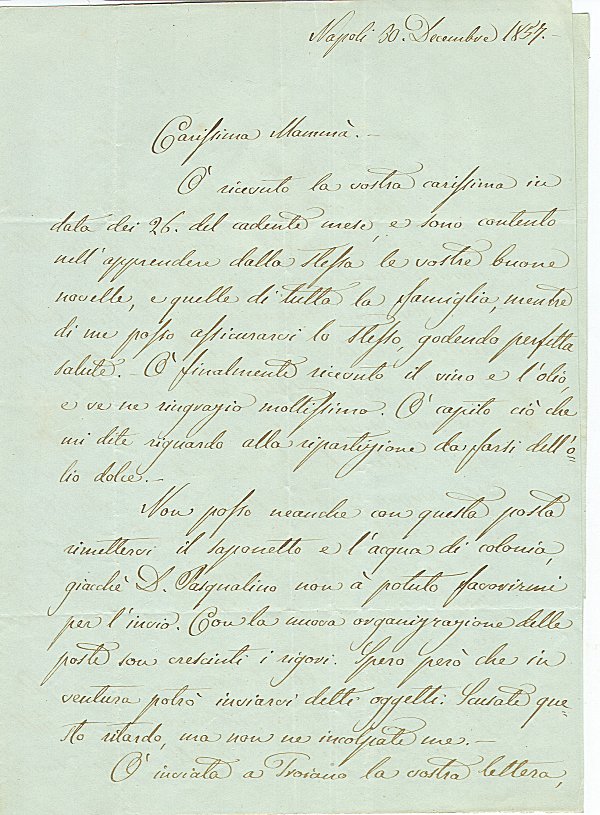 Napoli 30. Decembre 1857.-
Carissima Mammà.-
Ò ricevuto la vostra carissima in
data dei 26. del cadente mese, e sono contento
nell'apprendere dalla stessa le vostre buone
novelle, e quelle di tutta la famiglia, mentre
di me posso assicurarvi lo stesso, godendo perfetta
salute. - Ò finalmente ricevuto il vino e l'olio,
e ve ne ringrazio moltissimo. Ò capito ciò che
mi dite riguardo alla ripartizione da farsi dell'o=
lio dolce.-
Non posso neanche con questa posta
rimettervi il saponetto e l'acqua di colonia,
giacchè D. Pasqualino non à potuto favorirmi
per l'invio. Con la nuova organizzazione delle
poste son cresciuti i rigori. Spero però che in
ventura potrò inviarvi detti oggetti. Scusate que=
sto ritardo, ma non ne incolpate me.-
Ò inviata a Troiano la vostra lettera,